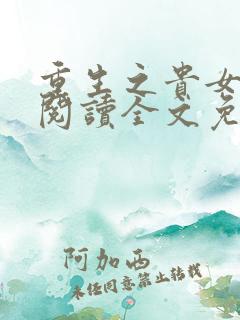 重生之貴女
閱讀全文免
阿加西
未经同意禁止转载